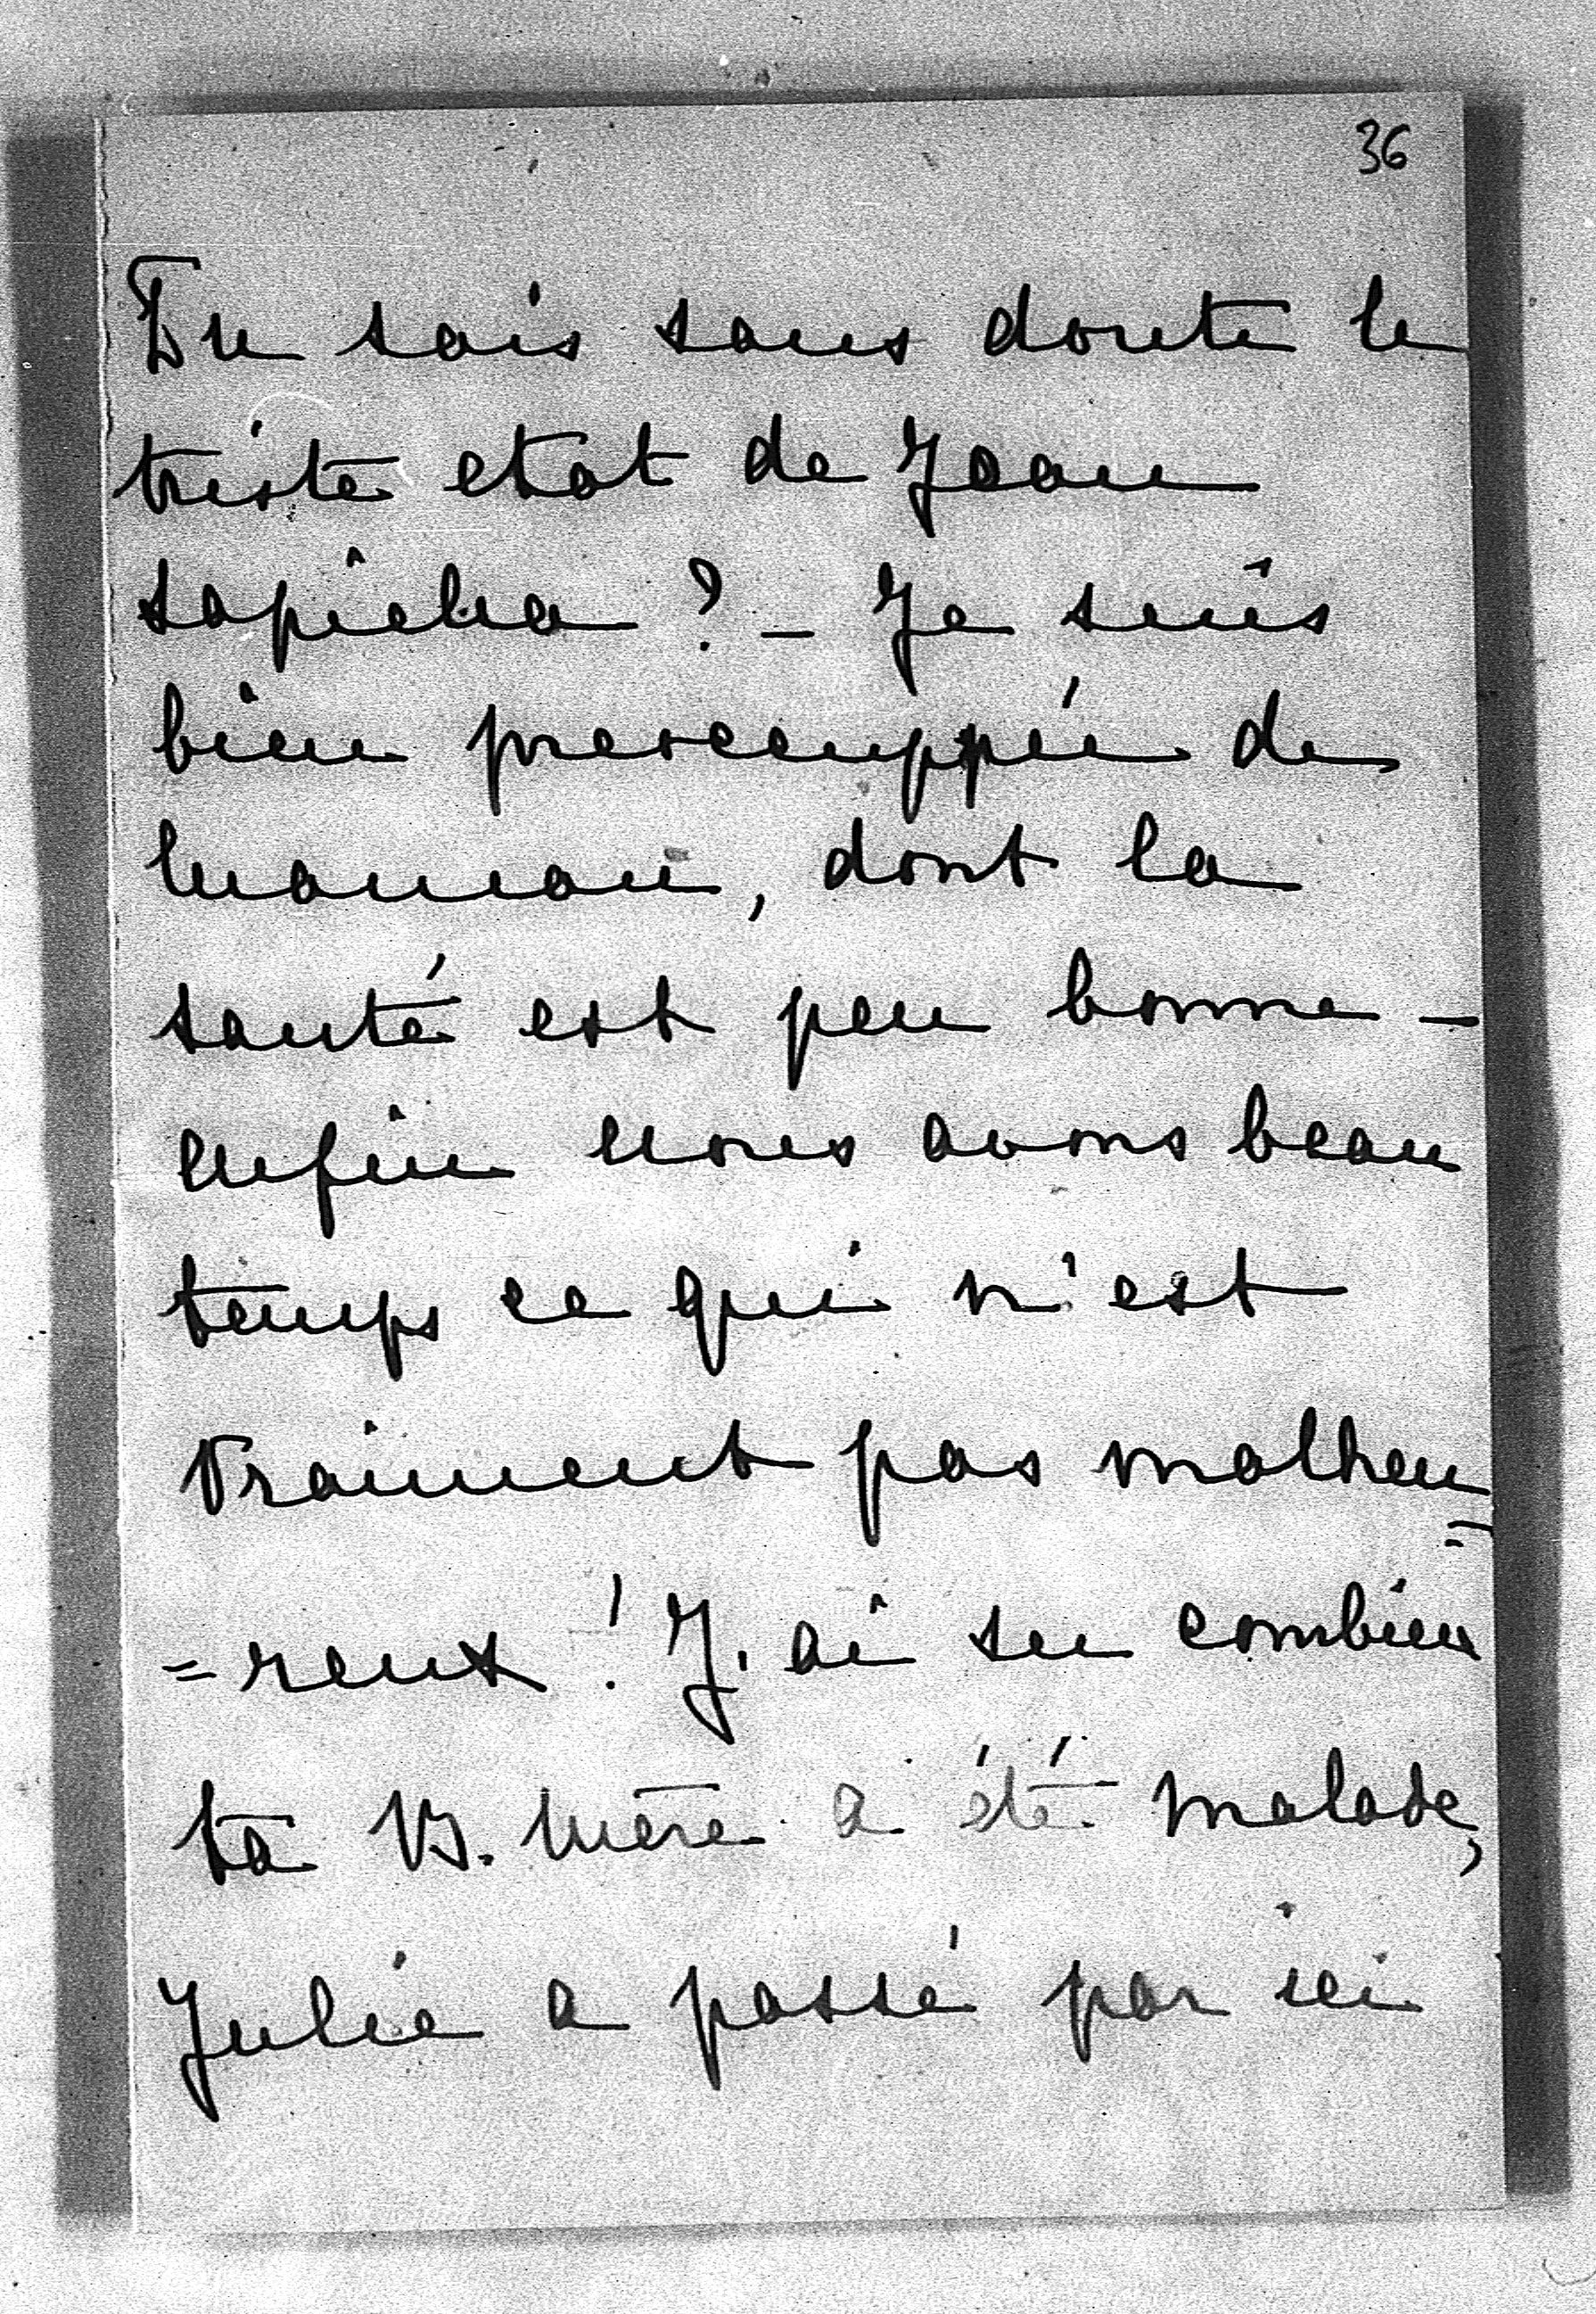 36
Tu sais sans doute le
triste etat de Jean
Sapieha ? - Je suis
bien preoccuppée de
Maman, dont la
santé est peu bonne -
enfin nous avons beau
temps ce qui n'est
vraiment pas malheu
=reux ! J'ai su combien
ta B. Mère a été malade,
Julie a passé par ici